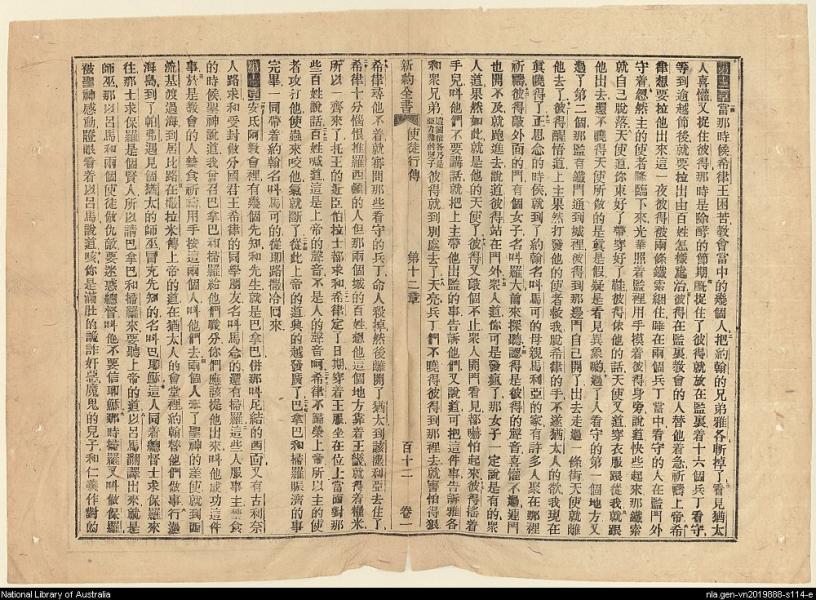 第十二章當那時候希律王困苦教會當中的幾個人把約翰的兄弟雅各斬掉了看見猶太
人喜懽又捉住彼得那時是除酵的節期旣捉住了彼得就放在監裏着十六個兵丁看守
等到逾越節後就要拉出由百姓怎樣處治彼得在監裏教會的人替他着急祈禱上帝希
律想要拉他出來這一夜彼得被兩條鐵索綑住睡在兩個兵丁當中看守的人在監門外
守着忽然主的使者降臨下來光華照着監裡用手摸着彼得身旁說道快些起來那鐵索
就自己脫落天使道你束好了帶穿好了鞋彼得依他的話天使又道穿衣服跟從我就跟
他出去還不曉得天使所做的是眞是假疑是看見異象哟過了人看守的第一個地方又
過了第二個那監有鐵門通到城裡彼得到那邊門自己開了出去走過一條街天使就離
他去了彼得醒悟道上主果然打發他的使者救我脫希律的手不遂猶太人的欲我現在
眞曉得了正思念的時候就到了約翰名叫馬可的母親馬利亞的家有許多人聚在那裡
祈禱彼得敲外面的門有個女子名叫羅大前來探聽認得是彼得的聲音喜懽不過連門
也開不及就跑進去說道彼得站在門外衆人道你可是發瘋了那女子一定說是有的衆
人道果然如此就是他的天使了彼得又敲個不止衆人開門看見都嚇怕起來彼得搖着
手兒叫他們不要講話就把上主帶他出監的事告訴他們又說道可把這件事告訴雅各
和衆兄弟彼得就到別處去了天亮兵丁們不曉得彼得到那裡去就害怕得狠
新約全書 使徒行傳 第十二章 百十二 卷一
希律尋他不着就審問那些看守的兵丁命人殺掉然後離開了猶太到該撒利亞去住了
希律十分惱恨推羅西頓的人但那兩個城的百姓想他這個地方靠着王纔就得着糧米
所以一齊來了托王的近臣伯拉士都求和希律定了日期穿着王服坐在位上當面對那
些百姓說話百姓喊道這是上帝的聲音不是人的聲音呵希律不歸榮上帝所以主的使
者攻打他使蟲來咬他氣就斷了從此上帝的道興的越發廣了巴拿巴和掃羅賑濟的事
完畢一同帶着約翰名叫馬可的從耶路撒冷回來
第十三章安氏阿教會裡有幾個先知和先生就是巴拿巴併那叫尼結的西面又有古利奈
人路求和受封做分國君王希律的同學朋友名叫馬念的還有掃羅這些人服事主禁食
的時候聖神說道我曾召巴拿巴和掃羅給他們職分你們應該從他出來叫他成功這件
事於是教會的人禁食祈禱用手按這兩個人叫他們去兩個人奉了聖神的差使就到西
流基渡過海到居比路在撒拉米傳上帝的道在猶太人的會堂裡約翰替他們做事行過
海島到了帕弗遇見個猶太的師巫冒充先知的名叫巴耶穌這人同着總督士求保羅來
往那士求保羅是個賢人所以請巴拿巴和掃羅來要聽上帝的道以呂馬翻譯出來就是
師巫那以呂馬和巴拿巴使徒做仇敵要迷惑總督叫他不要信耶穌那時掃羅又叫做保羅
被聖神感動睜眼看着以呂馬說道咳你是滿肚的詭詐奸惡魔鬼的兒子和仁義作對的
National Library of Australia
nla.gen-vn2019888-s114-e